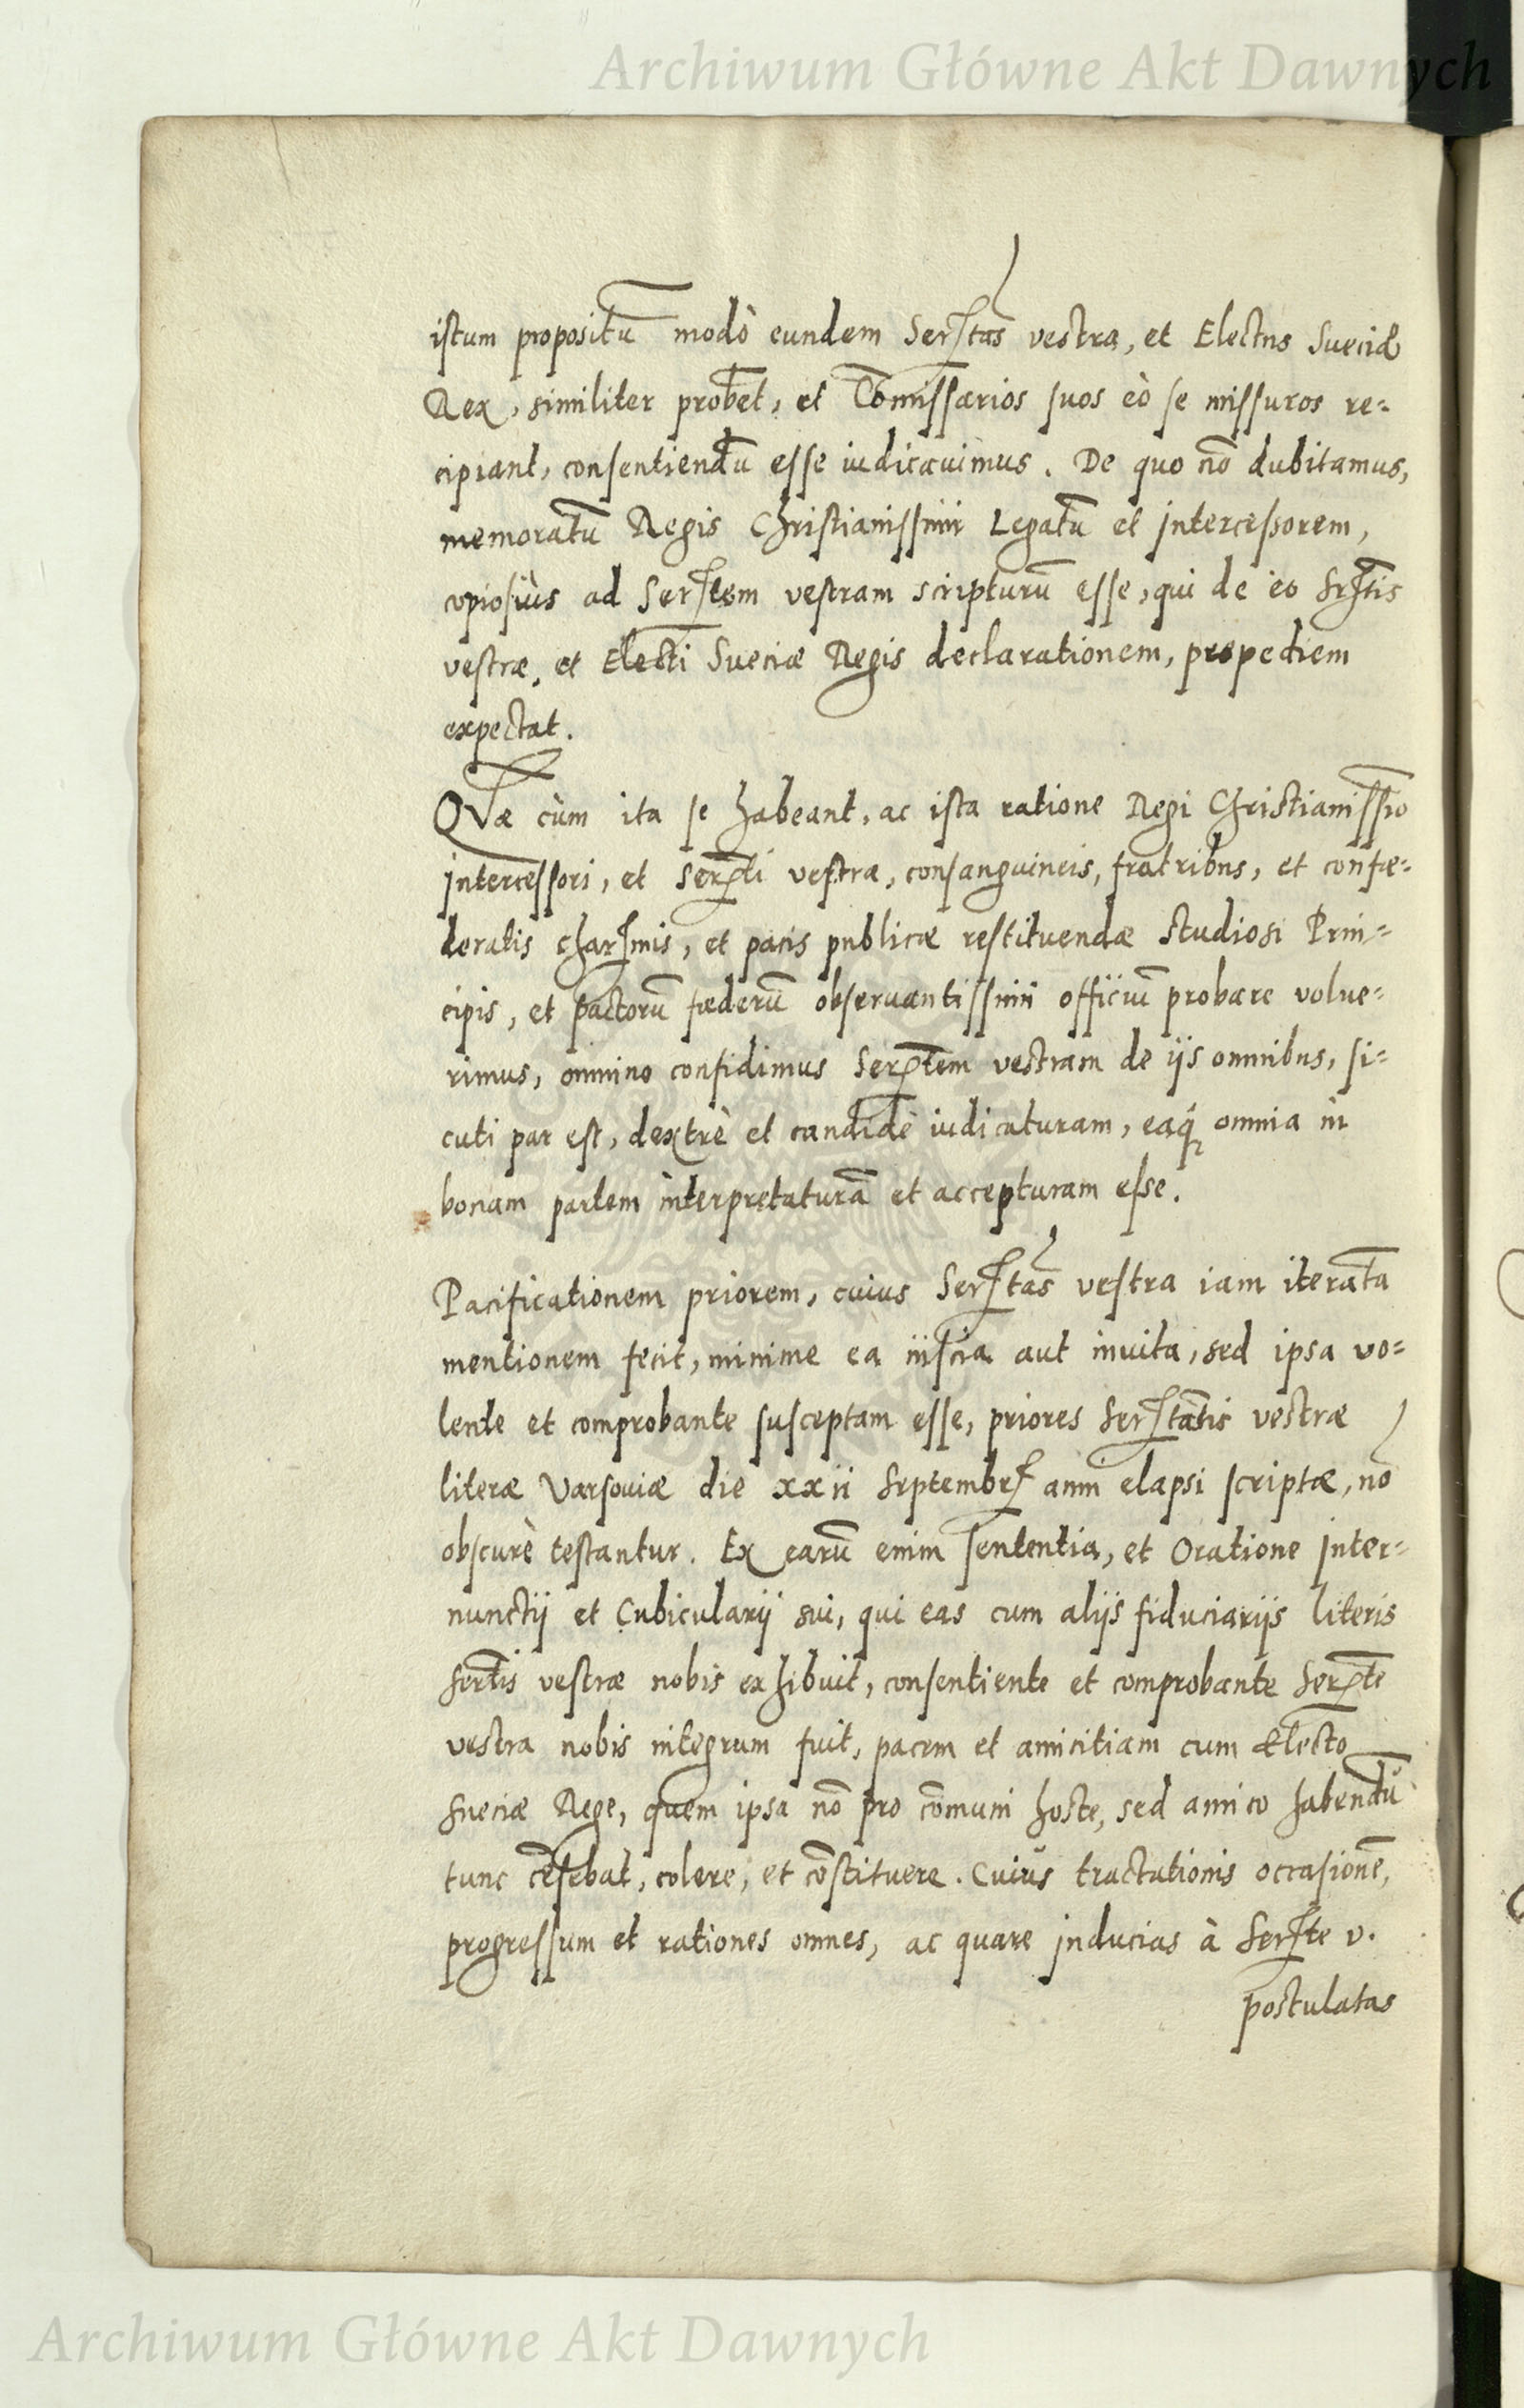 Archiwum Główne Akt Dawnych
istum propositū modò eundem Serſtas vestra, et Electus Sueciæ
Rex, similiter probet, et Comiſſarios ſuos eò ſe miſſuros re-
cipiant, conſentiendū eſſe iudicauimus. De quo nō dubitamus,
memoratū Regis Chriſtianiſſimi Legatū et interceſſorem,
copioſiùs ad Serſtem veſtram scripturū eſſe, qui de eo Srſtis
veſtræ, et Electi Sueciæ Regis declarationem, propediem
expectat.
QVæ cùm ita ſe habeant, ac iſta ratione Regi Christianiſſio
interceſſori, et Serſti veſtræ, conſanguineis, fratribus, et confœ-
deratis charſmis, et pacis publicæ reſtituendæ studiosi Prin-
cipis, et pactorū fœderū obseruantiſſimi officiū probare volue-
rimus, omnino confidimus Serſtem vestram de ijs omnibus, ſi-
cuti par eſt, dextrè et candidè iudicaturam, eaq́ omnia in
bonam partem interpretaturā et accepturam eſse.
Pacificationem priorem, cuius Serſtas veſtra iam iterata
mentionem fecit, minime ea inſcia aut inuita, sed ipsa vo-
lente et comprobante ſusceptam eſſe, priores Serſtatis vestræ
literæ Varſouiæ die xxii Septembrſ anni elapsi ſcriptæ, nō
obſcurè testantur. Ex earū enim ſententia, et Oratione Inter-
nunctij et Cubicularij sui, qui eas cum alijs fiduciarijs literis
Sertis veſtræ nobis exhibuit, conſentiente et comprobante Serſte
vestra nobis integrum fuit, pacem et amicitiam cum Electo
Sueciæ Rege, quem ipsa nō pro cōmuni hoste, sed amico habendū
tunc cēſebat, colere, et cōstituere. Cuius tractationis occasionē,
progreſſum et rationes omnes, ac quare inducias à Serſte v.
postulatas
Archiwum Główne Akt Dawnych